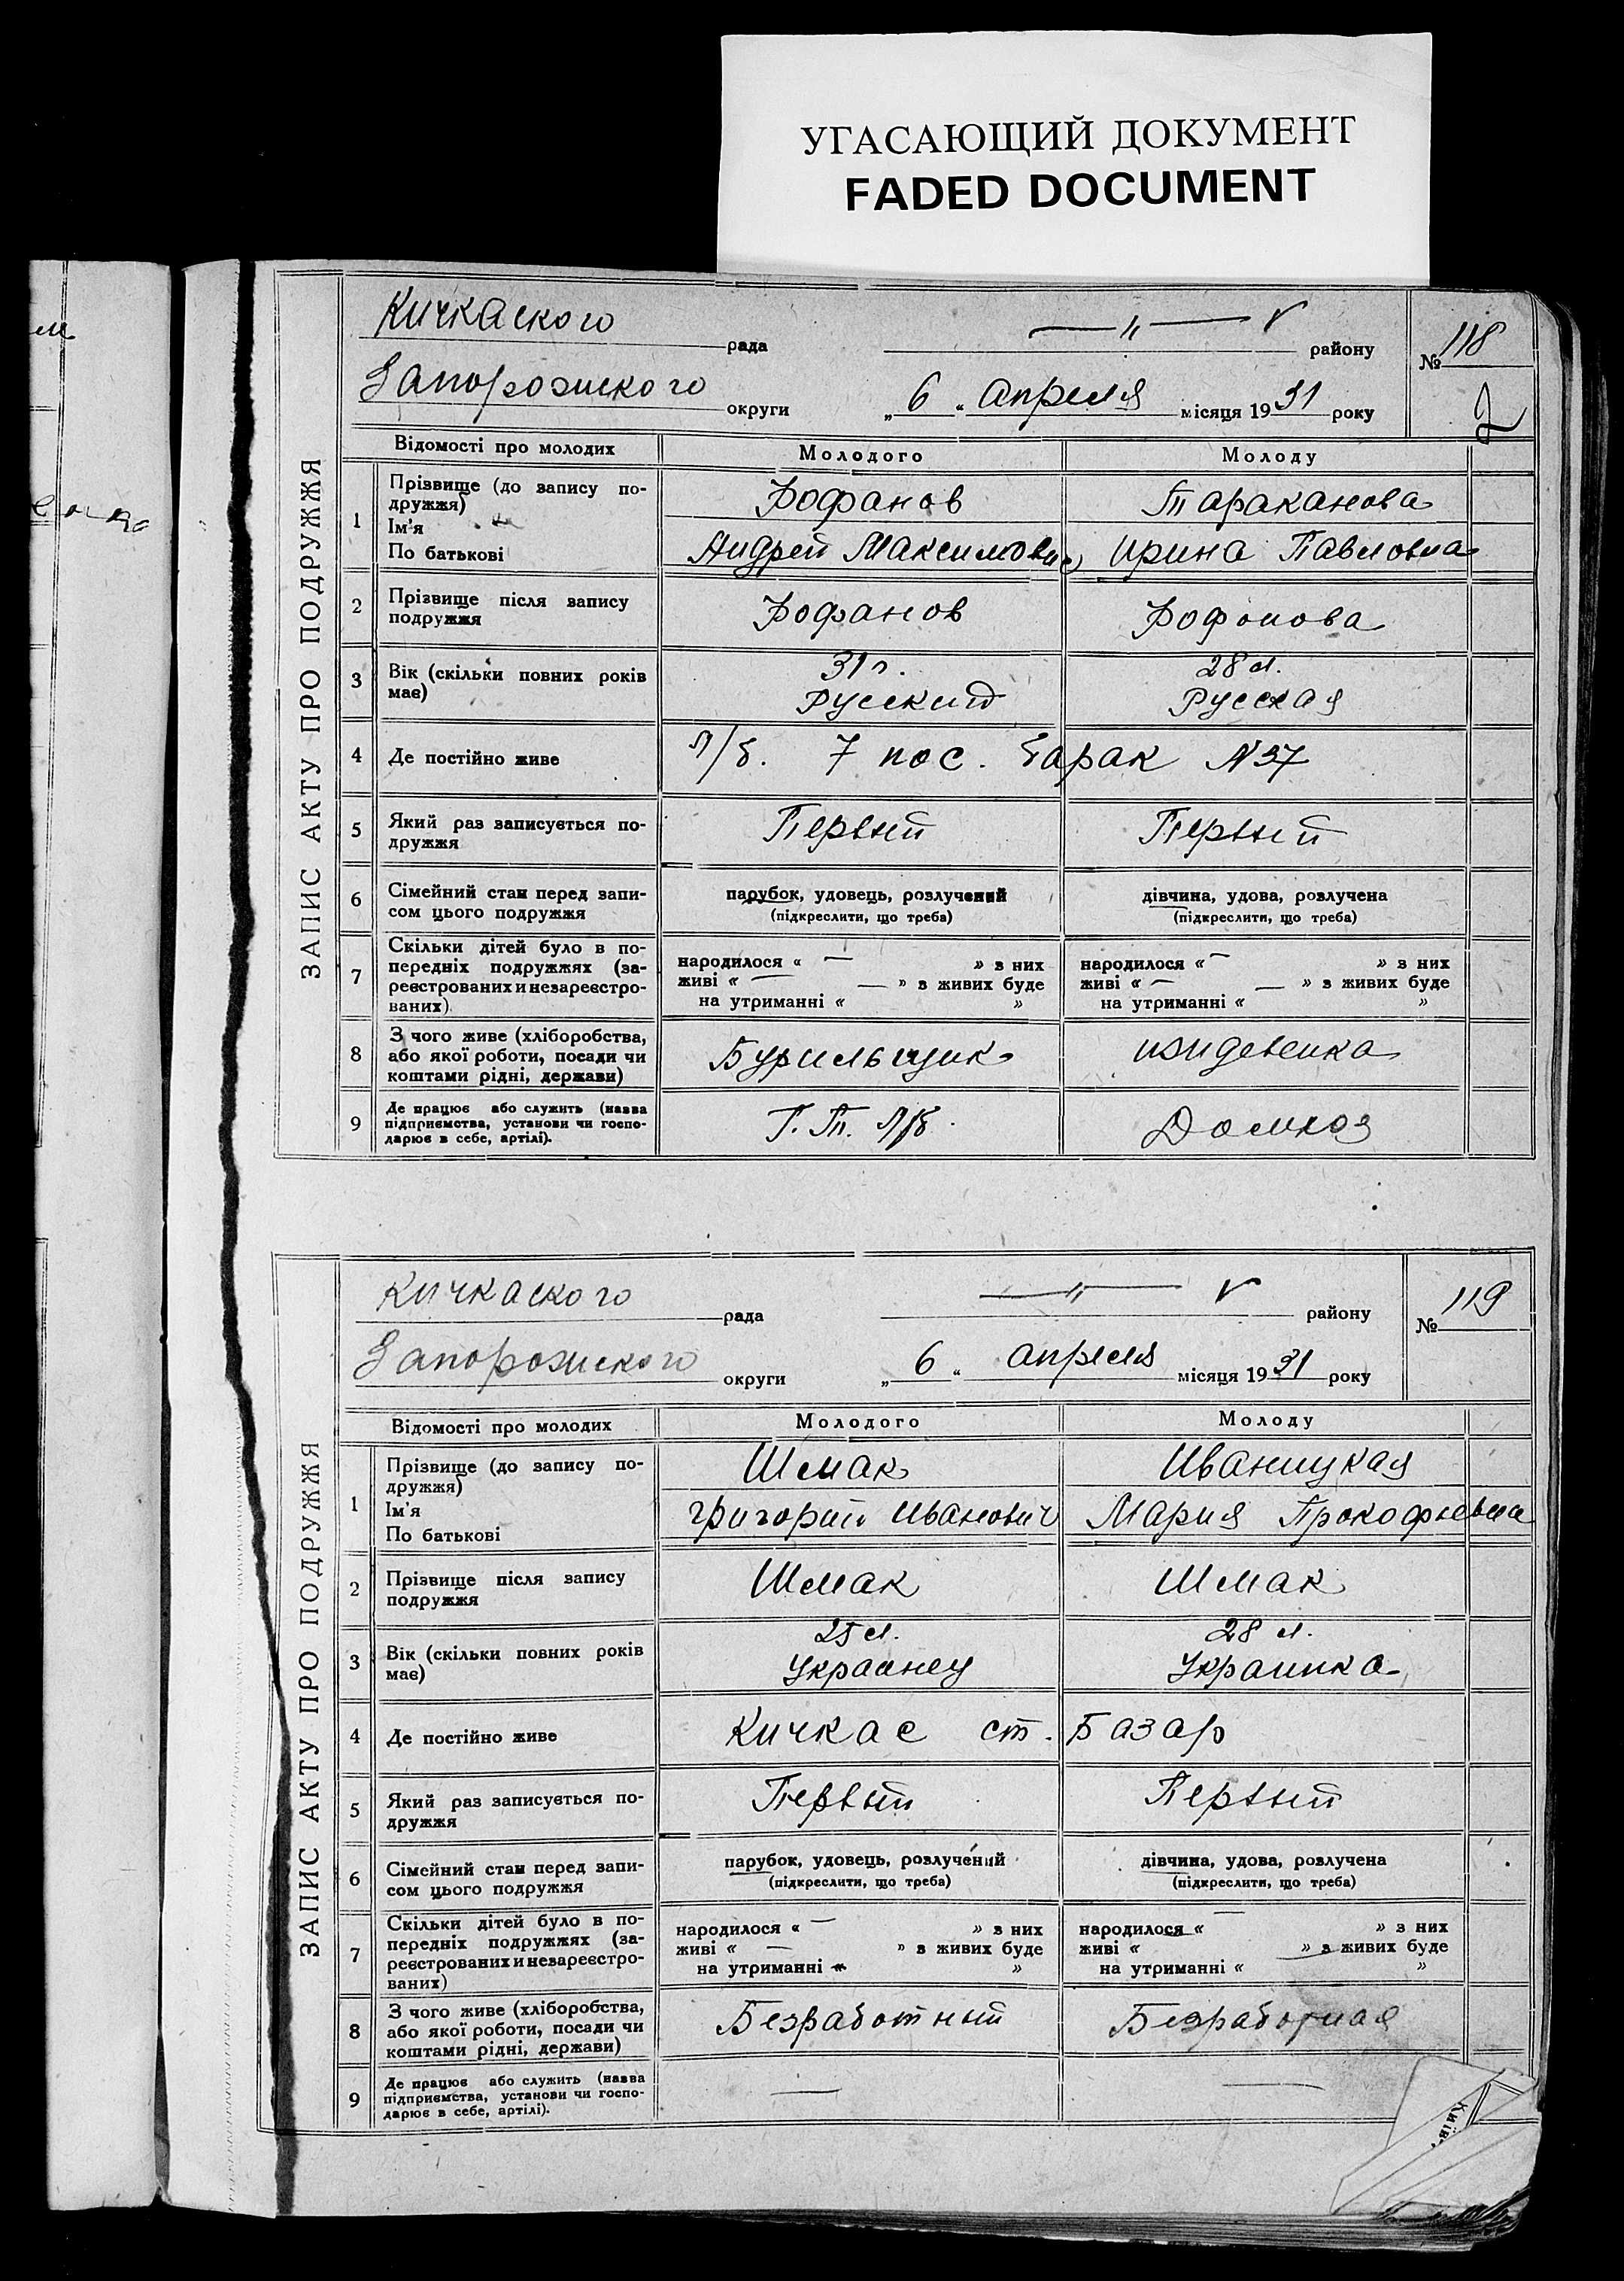 УГАСАЮЩИЙ ДОКУМЕНТ
FADED DOCUMENT
ЗАПИС АКТУ ПРО ПОДРУЖЖЯ
Кичкаского рада —〃— V району № 118
Запорожского округи „ 6 “ апреля місяця 1931 року
2
Відомості про молодих Молодого Молоду
1 Прізвище (до запису по-
дружжя)
Ім'я
По батькові
Фофанов Тараканова
Андрей Максимович Ирина Павловна
2 Прізвище після запису
подружжя
Фофанов Фофонова
3 Вік (скільки повних років
має)
31 г. 28 л.
Русский Русская
4 Де постійно живе Л/б. 7 пос. барак N 37
5 Який раз записується по-
дружжя
Первый Первый
6 Сімейний стан перед запи-
сом цього подружжя
парубок, удовець, розлучений дівчина, удова, розлучена
(підкреслити, що треба) (підкреслити, що треба)
7 Скільки дітей було в по-
передніх подружжях (за-
реєстрованих и незареєстро-
ваних)
народилося « — » з них народилося « — » з них
живі « — — » з живих буде живі « — — » з живих буде
на утриманні « » на утриманні « »
8 З чого живе (хліборобства,
або якої роботи, посади чи
коштами рідні, держави)
Бурильщик иждевенка
9 Де працює або служить (назва
підприємства, установи чи госпо-
дарює в себе, артілі).
Г. П. Л/б. Домхоз
ЗАПИС АКТУ ПРО ПОДРУЖЖЯ
Кичкаского рада —〃— V району № 119
Запорожского округи „ 6 “ апреля місяця 1931 року
Відомості про молодих Молодого Молоду
1 Прізвище (до запису по-
дружжя)
Ім'я
По батькові
Шмак Иваницкая
Григорий Иванович Мария Прокофьевна
2 Прізвище після запису
подружжя
Шмак Шмак
3 Вік (скільки повних років
має)
25 л. 28 л.
Украинец Украинка
4 Де постійно живе Кичкас ст. Базар
5 Який раз записується по-
дружжя
Первый Первый
6 Сімейний стан перед запи-
сом цього подружжя
парубок, удовець, розлучений дівчина, удова, розлучена
(підкреслити, що треба) (підкреслити, що треба)
7 Скільки дітей було в по-
передніх подружжях (за-
реєстрованих и незареєстро-
ваних)
народилося « — » з них народилося « — » з них
живі « — » з живих буде живі « » з живих буде
на утриманні « » на утриманні « »
8 З чого живе (хліборобства,
або якої роботи, посади чи
коштами рідні, держави)
Безработный Безработная
9 Де працює або служить (назва
підприємства, установи чи госпо-
дарює в себе, артілі).
— —
Київ